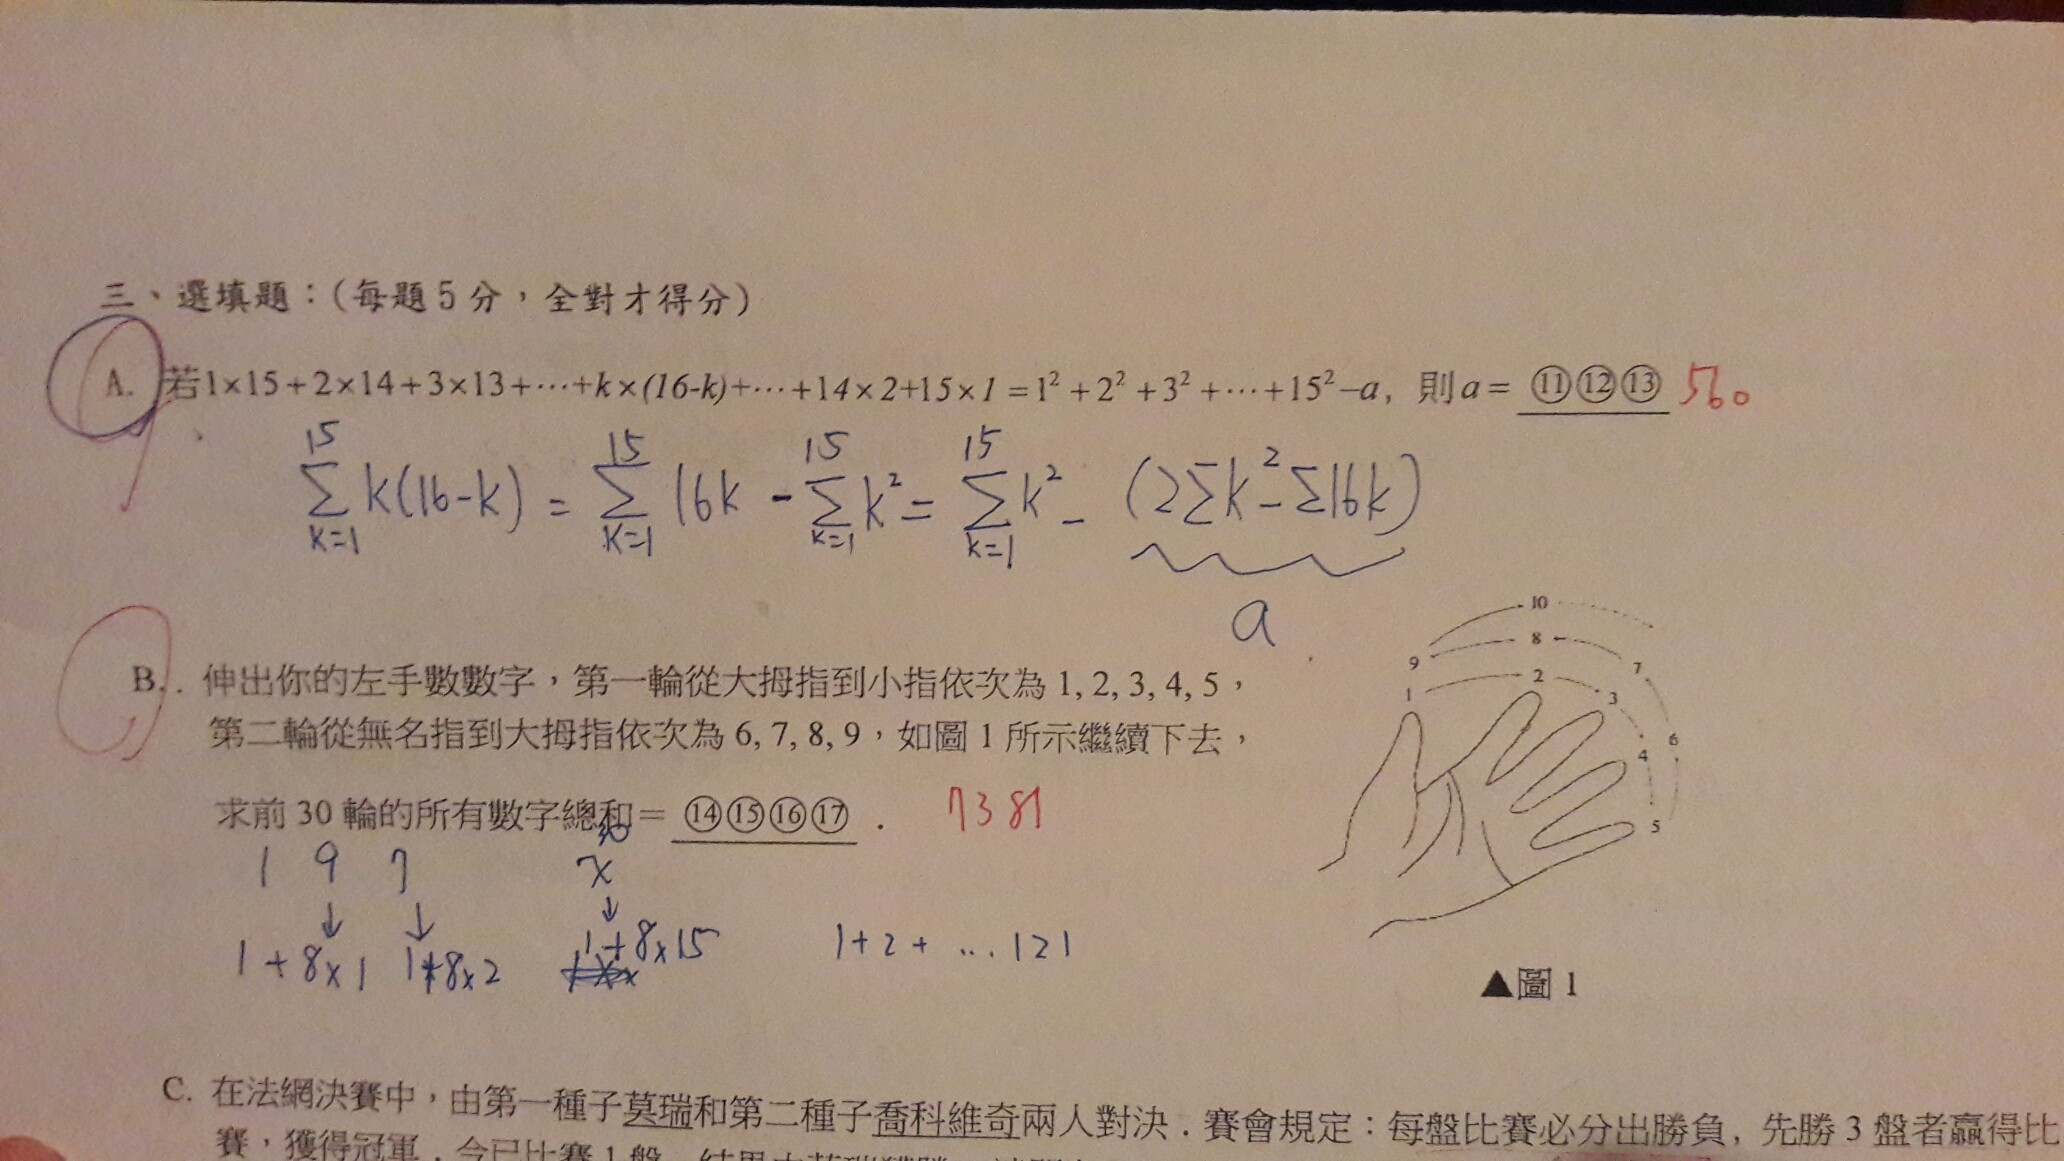 三、選填題：(每題5分，全對才得分)
A. 若1×15+2×14+3×13+⋯+k×(16-k)+⋯+14×2+15×1=1²+2²+3²+⋯+15²−a, 則a= ⑪⑫⑬ 560
15 15 15 15
Σ k(16-k) = Σ 16k - Σ k² = Σ k² - (2Σk²-Σ16k)
k=1 k=1 k=1 k=1
a
B. . 伸出你的左手數數字，第一輪從大拇指到小指依次為 1, 2, 3, 4, 5，
第二輪從無名指到大拇指依次為 6, 7, 8, 9，如圖 1 所示繼續下去，
求前 30 輪的所有數字總和= ⑭⑮⑯⑰ . 7381
1 9 7 x
↓ ↓ ↓
1+8×1 1+8×2 1+8×15 1+2+ ...121
10
9 8 7
1 2 3
4 6
5
▲圖 1
C. 在法網決賽中，由第一種子莫瑞和第二種子喬科維奇兩人對決．賽會規定：每盤比賽必分出勝負, 先勝 3 盤者贏得比
賽，獲得冠軍．今已比賽 1 盤